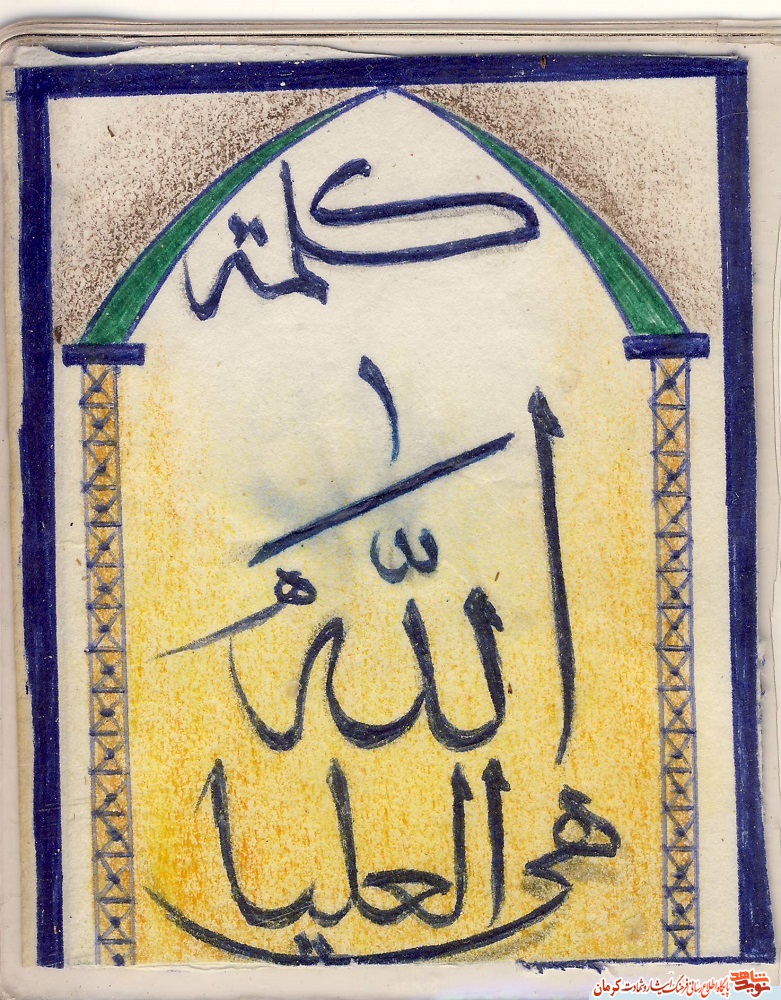 كلمة
اللّٰهُ
هي العليا
نوید شاهد
پایگاه اطلاع رسانی فرهنگ ایثار و شهادت کرمان